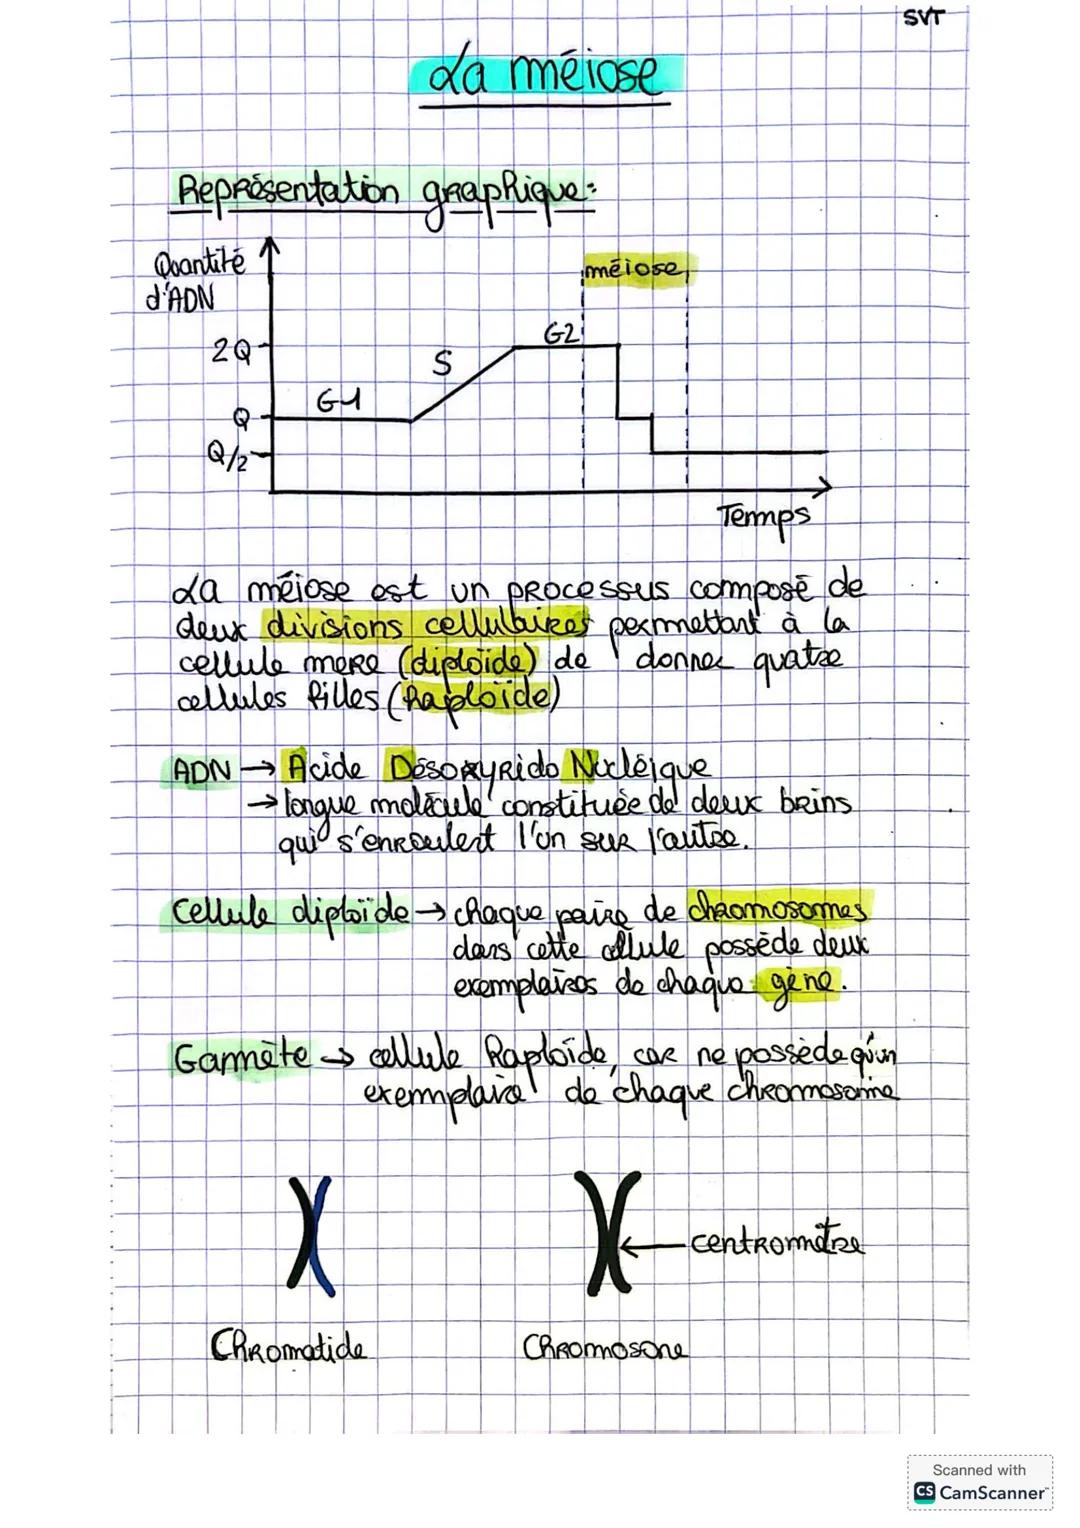 SVT
La méiose
Représentation graphique:
Quantité
d'ADN
méiose
2Q
G2
S
G1
Q
Q/2
Temps
La méiose est un processus composé de
deux divisions cellulaires permettant à la
cellule mere (diploïde) de donner quatre
cellules filles (haploïde)
ADN → Acide Désoxyrido Nucléique
→ longue molécule constituée de deux brins
qui s'enroulent l'un sur l'autre.
Cellule diploïde → chaque paire de chromosomes
dans cette cellule possède deux
exemplaires de chaque gène.
Gamète → cellule haploïde, car ne possède qu'un
exemplaire de chaque chromosome
← centromètre
Chromatide
Chromosone
Scanned with
CS CamScanner